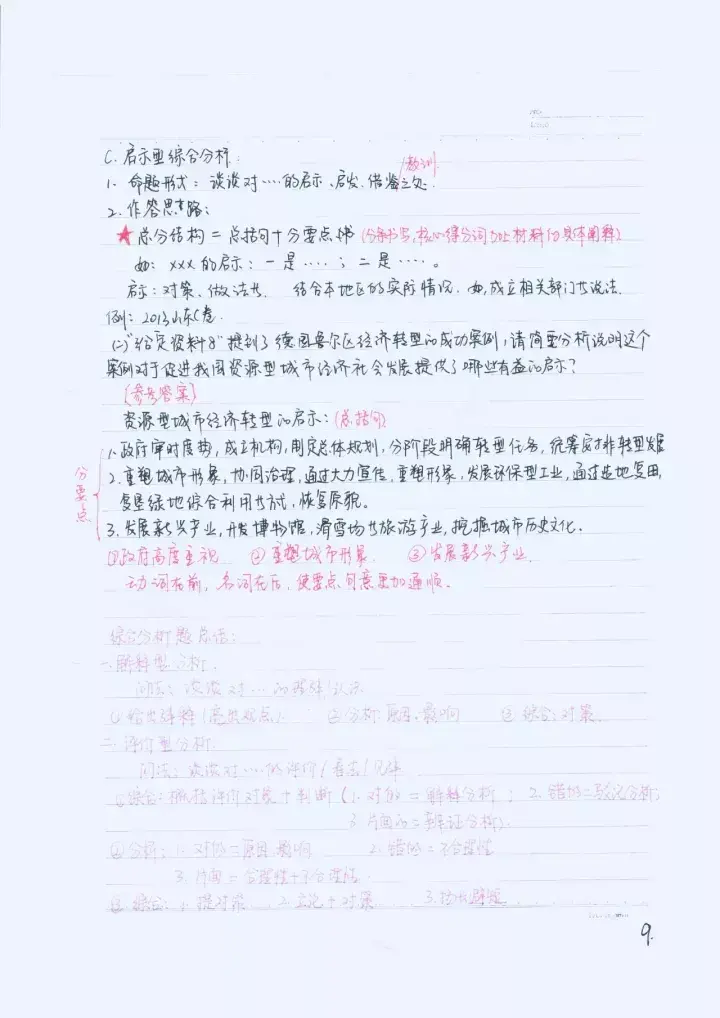 C. 启示型综合分析:
1. 命题形式: 谈谈对……的启示、启发、借鉴之处. /教训
2. 作答思路:
★ 总分结构 = 总括句+分要点 (分条书写, 核心得分词 材料 具体阐释)
如: XXX的启示: 一是……; 二是……。
启示: 对策、做法 结合本地区的实际情况. 如,成立相关部门 说法.
例: 2013山东C卷.
(二)“给定资料8”提到了德国鲁尔区经济转型的成功案例, 请简要分析说明这个
案例对于促进我国资源型城市经济社会发展提供了哪些有益的启示?
[参考答案]
资源型城市经济转型的启示: (总括句)
分要点
1. 政府审时度势, 成立机构, 制定总体规划, 分阶段明确转型任务, 统筹安排 转型发展
2. 重塑城市形象, 协同治理, 通过大力宣传, 重塑形象, 发展环保型工业, 通过造地复田,
复垦绿地综合利用 方式, 恢复原貌。
3. 发展新兴产业, 开发博物馆, 滑雪场 旅游产业, 挖掘城市历史文化.
①政府高度重视 ②重塑城市形象 ③发展新兴产业.
动词在前, 名词在后, 使要点句意更加通顺。
综合分析题总结:
一. 解释型分析.
问法: 谈谈对……的理解/认识
①给出解释(亮出观点). ②分析: 原因、影响 ③综合: 对策.
二. 评价型分析.
问法: 谈谈对……的评价/看法/见解
①综合: 概括评价对象+判断 (1. 对的=解释分析; 2. 错的=驳论分析;
3. 片面的=辩证分析).
②分析: 1. 对的=原因 影响 2. 错的=不合理性
3. 片面=合理性+不合理性.
③综合: 1. 提对策 2. 立论+对策 3.
9.